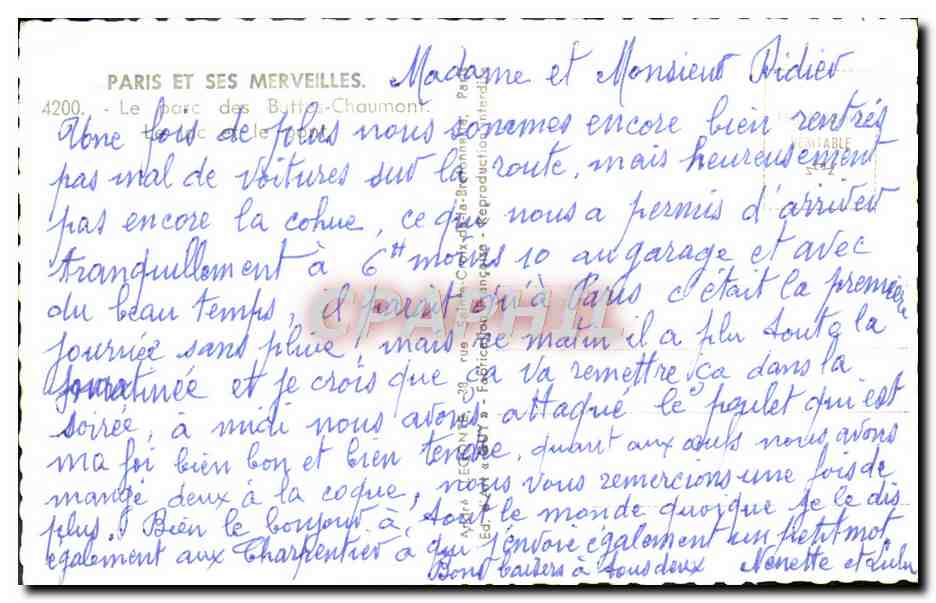 Madame et Monsieur Didier
PARIS ET SES MERVEILLES.
4200. - Le parc des Buttes-Chaumont.
Le lac et le pont.
Une fois de plus nous sommes encore bien rentrés
VÉRITABLE
pas mal de voitures sur la route, mais heureusement
pas encore la cohue, ce qui nous a permis d'arriver
tranquillement à 6H moins 10 au garage et avec
du beau temps, il parait qu'à Paris c'était la première
journée sans pluie, mais ce matin il a plu toute la
matinée et je crois que ça va remettre ça dans la
soirée, à midi nous avons attaqué le poulet qui est
ma foi bien bon et bien tendre, quant aux œufs nous avons
mangé deux à la coque, nous vous remercions une fois de
plus. Bien le bonjour à tout le monde quoique je le dis
également aux Charpentier à qui j'envoie également un petit mot.
Bons baisers à tous deux Nenette et Lulu
André LECONTE, 38, rue Sainte-Croix-de-la-Bretonnerie, Paris
Éd. d'Art « GUY » - Fabrication Française - Reproduction interdite
CPAPHIL